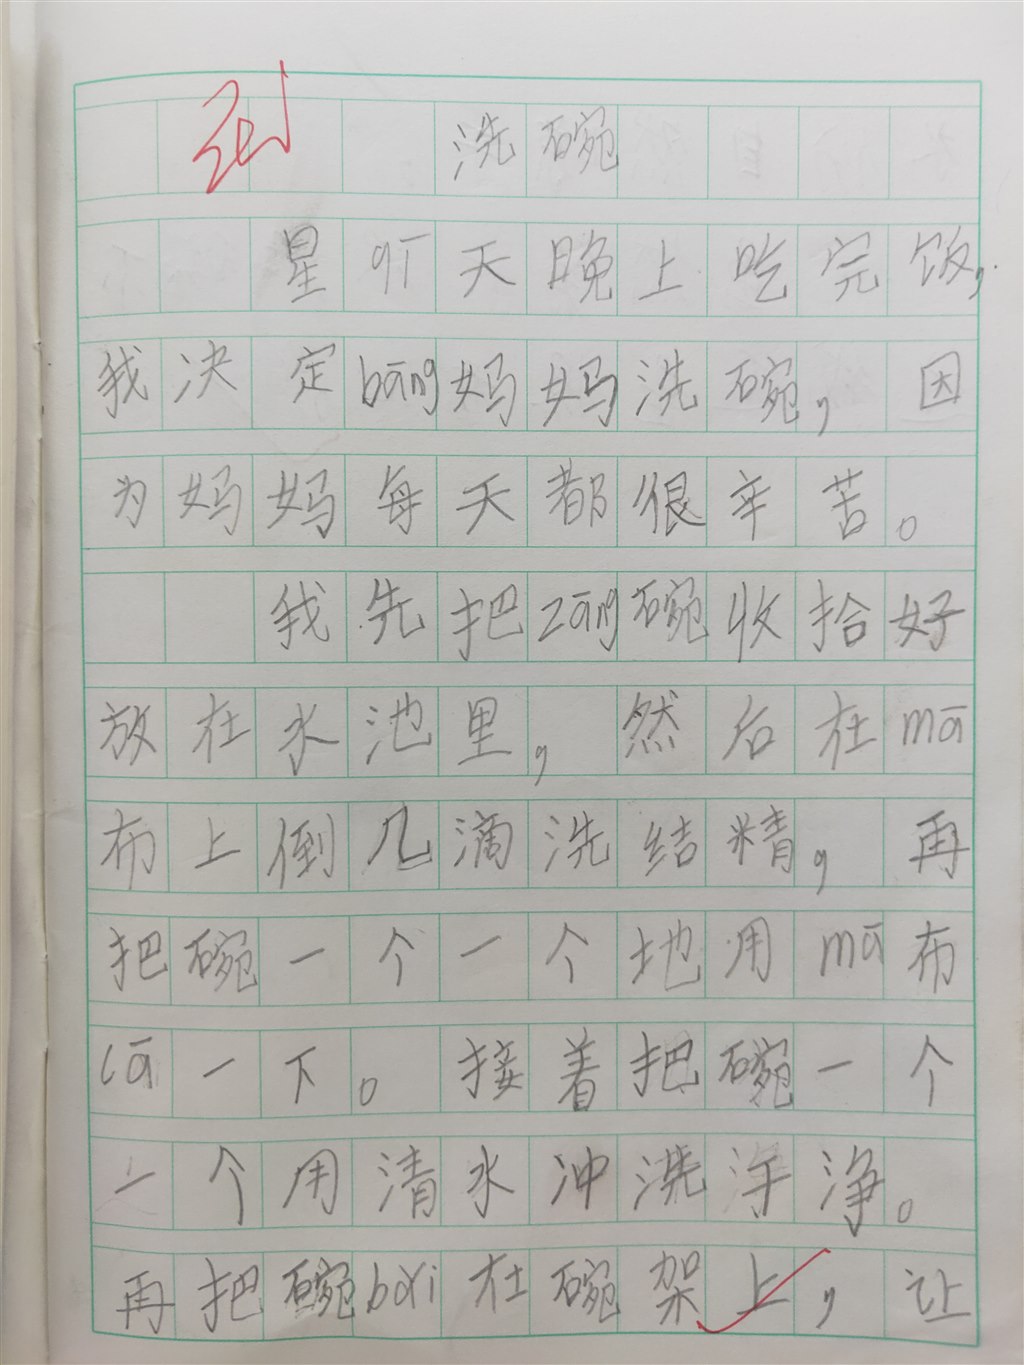 洗碗
星qī天晚上吃完饭，
我决定bāng妈妈洗碗，因
为妈妈每天都很辛苦。
我先把zāng碗收拾好
放在水池里，然后在mā
布上倒几滴洗结精，再
把碗一个一个地用mā布
cā一下。接着把碗一个
一个用清水冲洗干净。
再把碗bǎi在碗架上，让